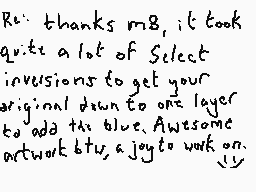 Re: thanks m8, it took
quite a lot of Select
inversions to get your
original down to one layer
to add the blue. Awesome
artwork btw, a joy to work on.